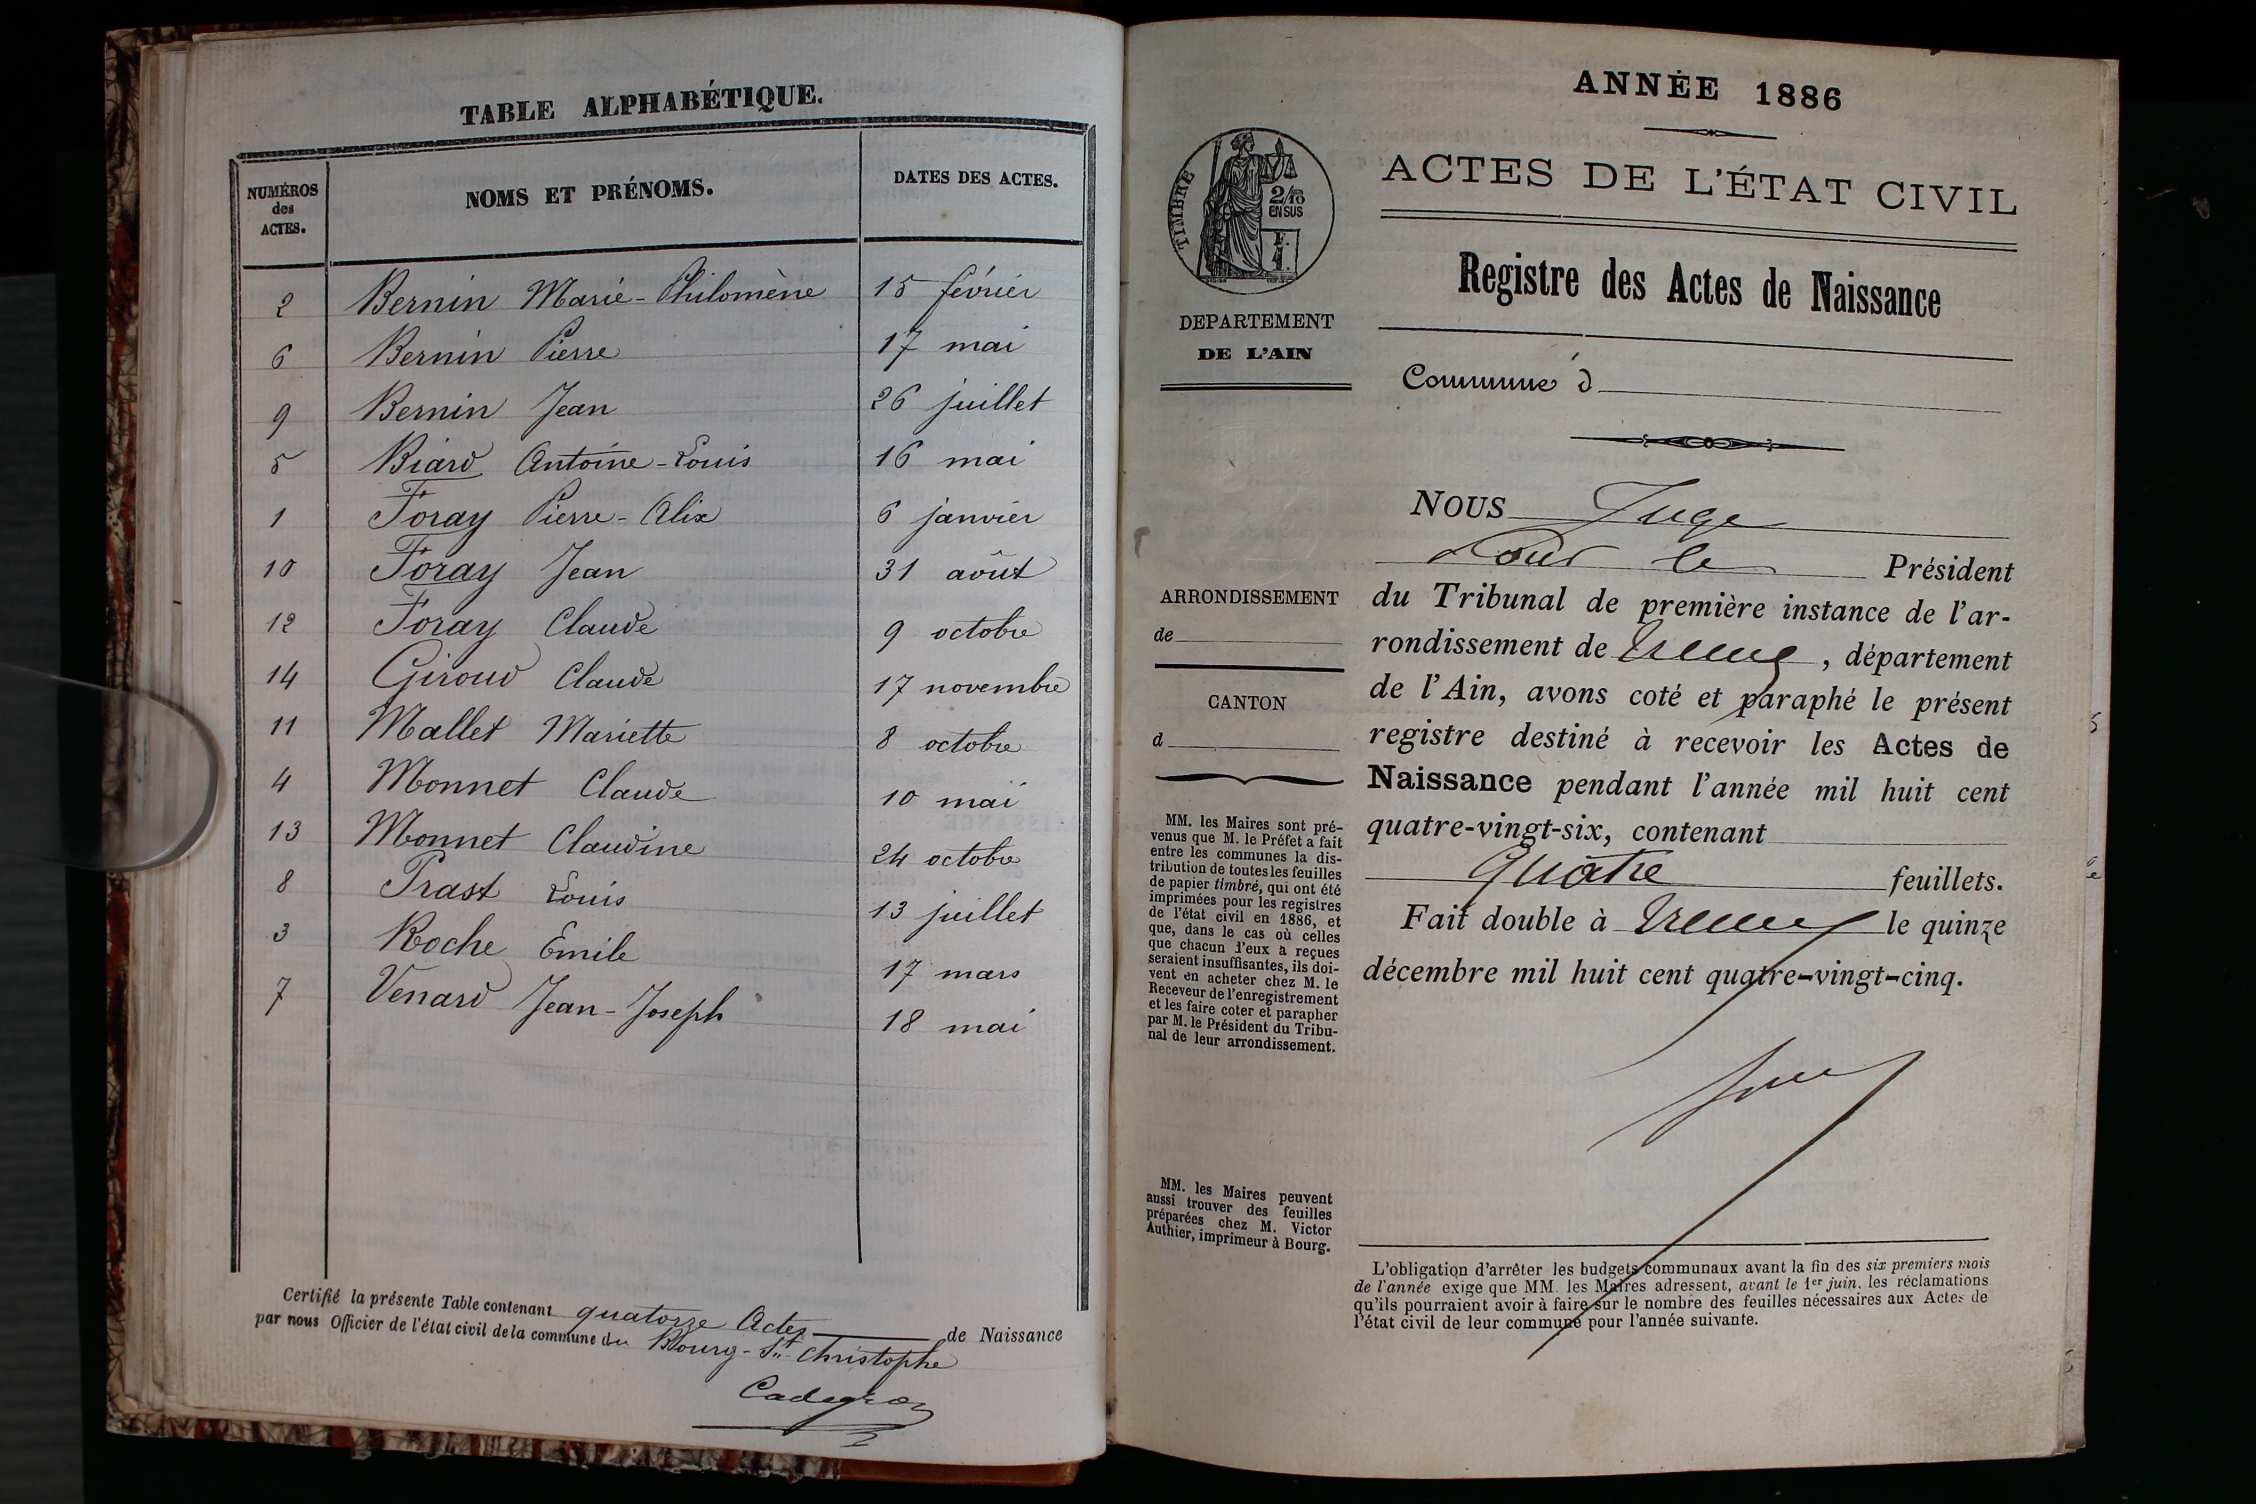 TABLE ALPHABÉTIQUE.
NUMÉROS des ACTES. NOMS ET PRÉNOMS. DATES DES ACTES.
2 Bernin Marie-Philomène 15 février
6 Bernin Pierre 17 mai
9 Bernin Jean 26 juillet
5 Biard Antoine-Louis 16 mai
1 Foray Pierre-Alix 6 janvier
10 Foray Jean 31 août
12 Foray Claude 9 octobre
14 Giroud Claude 17 novembre
11 Mallet Mariette 8 octobre
4 Monnet Claude 10 mai
13 Monnet Claudine 24 octobre
8 Prast Louis 13 juillet
3 Roche Emile 17 mars
7 Venard Jean-Joseph 18 mai
Certifié la présente Table contenant quatorze Actes de Naissance
par nous Officier de l'état civil de la commune du Bourg-St-Christophe
ANNÉE 1886
ACTES DE L'ÉTAT CIVIL
TIMBRE
2/10
EN SUS
F.
1.
DEPARTEMENT
DE L'AIN
Registre des Actes de Naissance
Commune d
NOUS Juge
Pour le Président
du Tribunal de première instance de l'ar-
rondissement de , département
de l'Ain, avons coté et paraphé le présent
registre destiné à recevoir les Actes de
Naissance pendant l'année mil huit cent
quatre-vingt-six, contenant
quatre feuillets.
Fait double à le quinze
décembre mil huit cent quatre-vingt-cinq.
ARRONDISSEMENT
de
CANTON
d
MM. les Maires sont pré-
venus que M. le Préfet a fait
entre les communes la dis-
tribution de toutes les feuilles
de papier timbré, qui ont été
imprimées pour les registres
de l'état civil en 1886, et
que, dans le cas où celles
que chacun d'eux a reçues
seraient insuffisantes, ils doi-
vent en acheter chez M. le
Receveur de l'enregistrement
et les faire coter et parapher
par M. le Président du Tribu-
nal de leur arrondissement.
MM. les Maires peuvent
aussi trouver des feuilles
préparées chez M. Victor
Authier, imprimeur à Bourg.
L'obligation d'arrêter les budgets communaux avant la fin des six premiers mois
de l'année exige que MM. les Maires adressent, avant le 1er juin, les réclamations
qu'ils pourraient avoir à faire sur le nombre des feuilles nécessaires aux Actes de
l'état civil de leur commune pour l'année suivante.